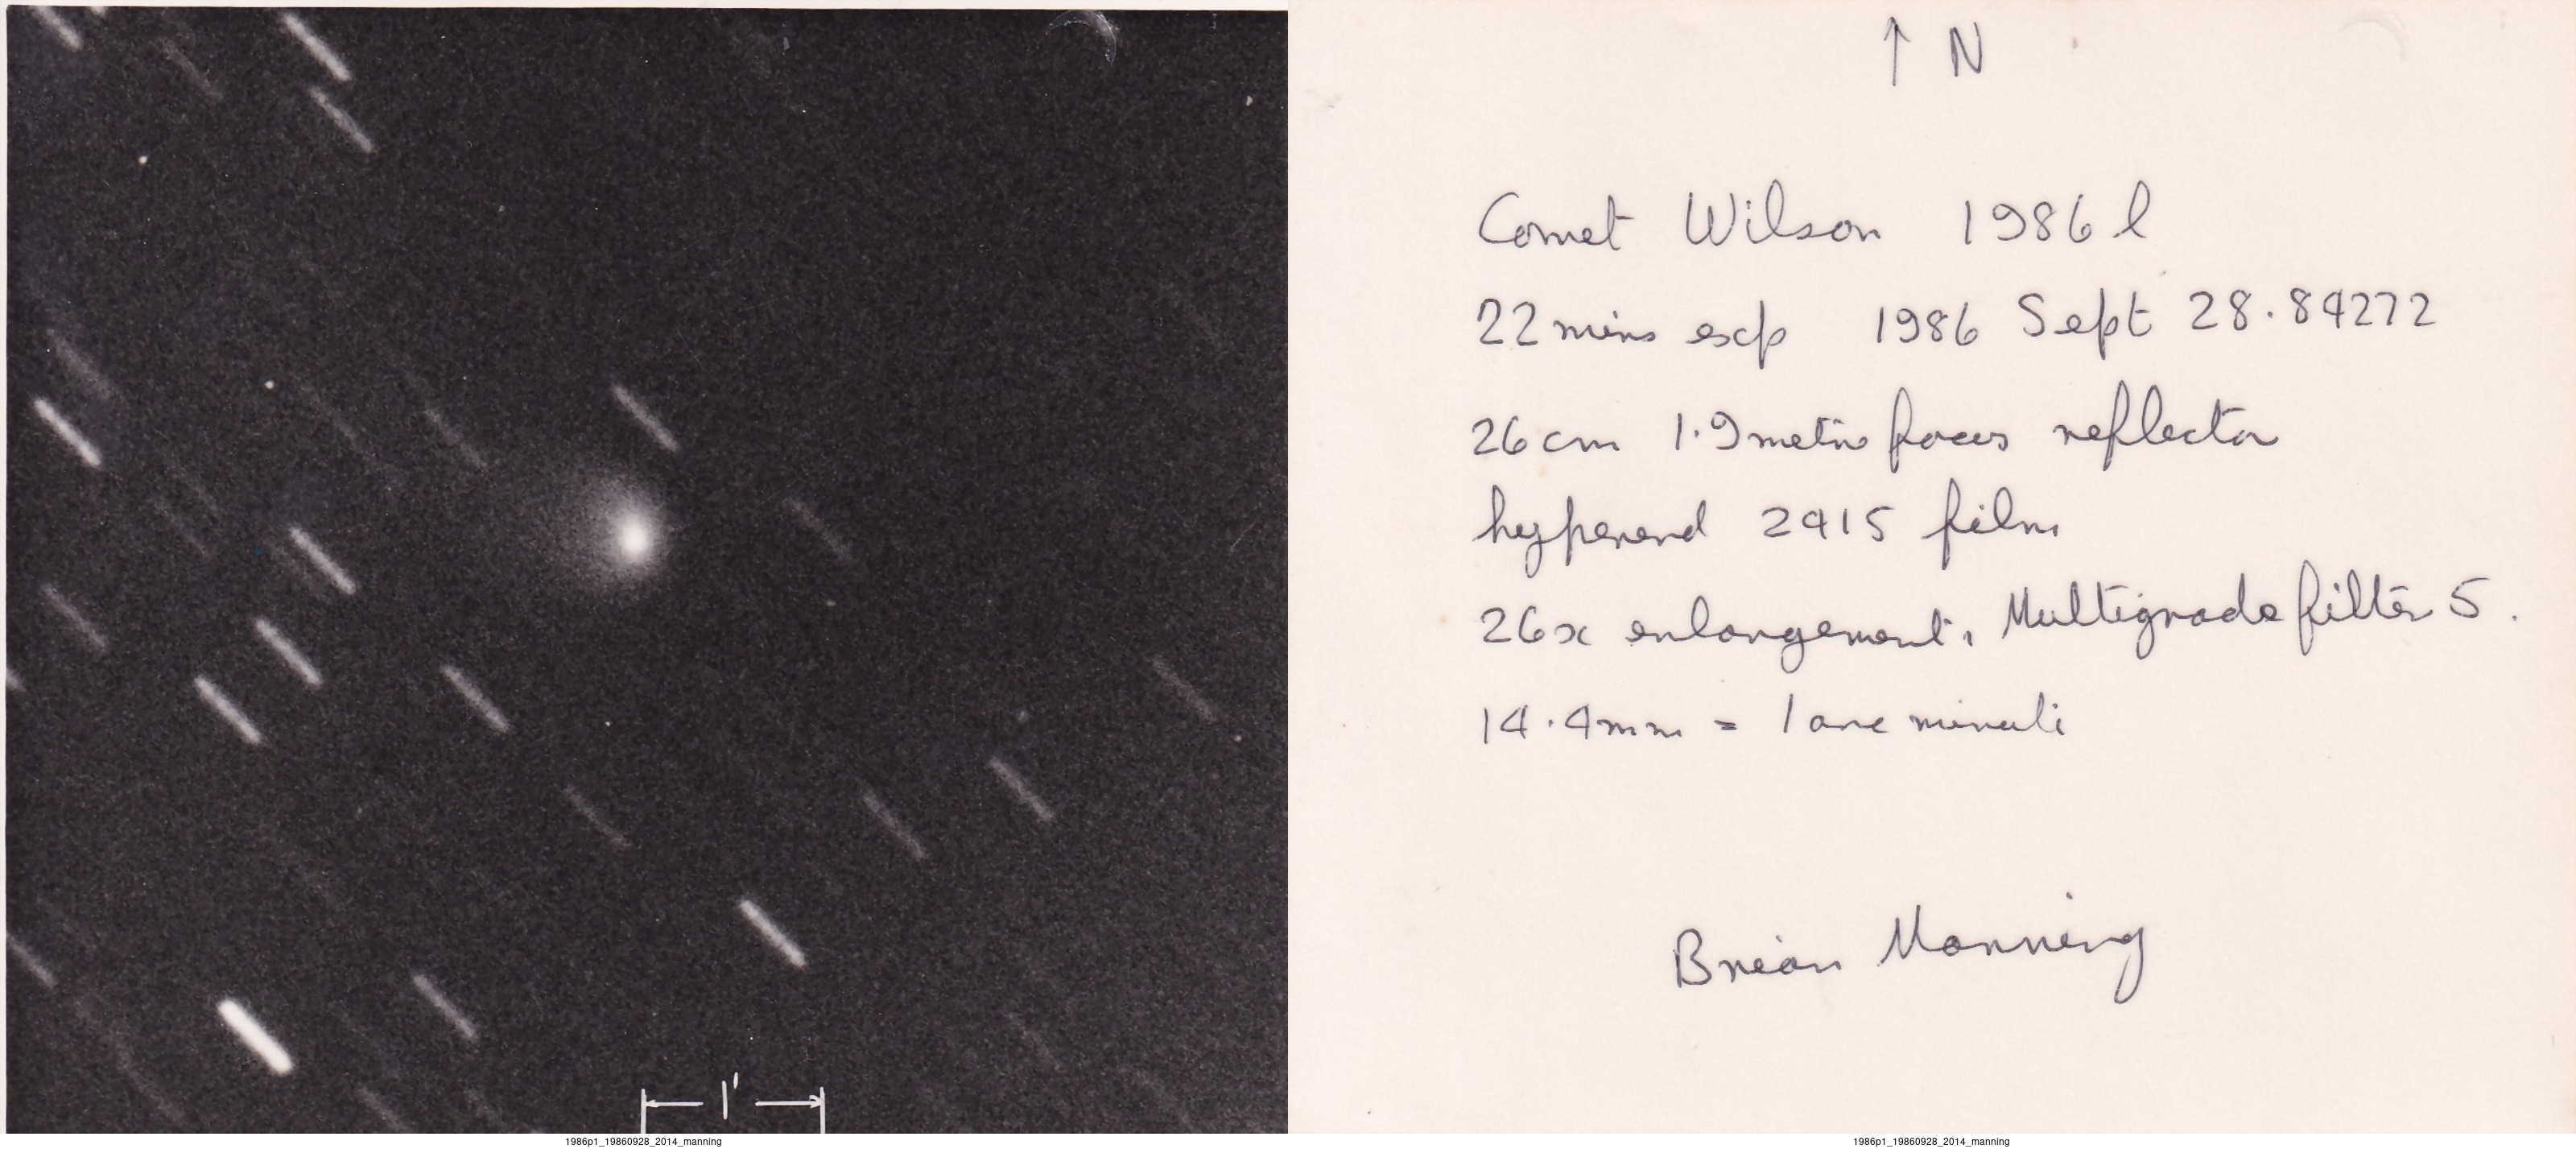 1'
1986p1_19860928_2014_manning
↑ N
Comet Wilson 1986 l
22 mins exp 1986 Sept 28.84272
26 cm 1.9 metre focus reflector
hypered 2415 film
26x enlargement. Multigrade filter 5.
14.4mm = 1 arc minute
Brian Manning
1986p1_19860928_2014_manning